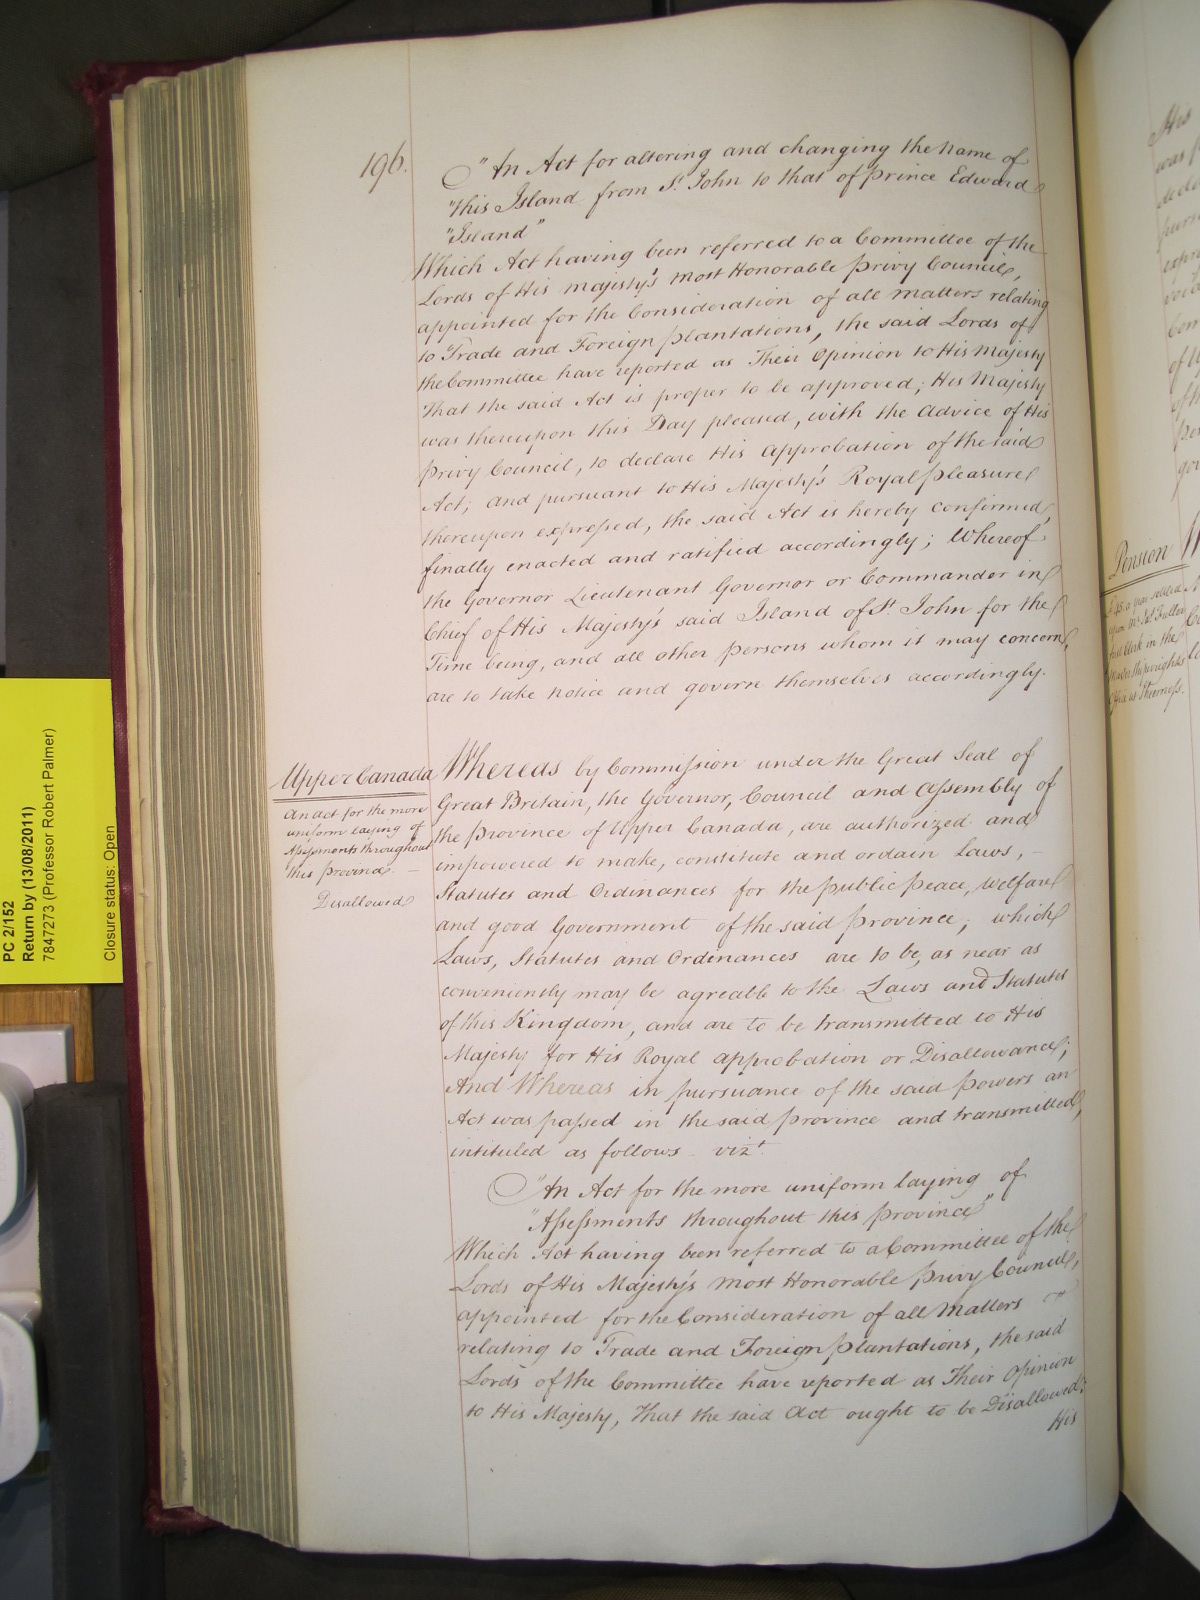 196.
"An Act for altering and changing the Name of
"this Island from St. John to that of Prince Edward
"Island"
Which Act having been referred to a Committee of the
Lords of His Majesty's Most Honorable Privy Council,
appointed for the Consideration of all Matters relating
to Trade and Foreign Plantations, the said Lords of
the Committee have reported as Their Opinion to His Majesty
that the said Act is proper to be approved; His Majesty
was thereupon this Day pleased, with the Advice of His
Privy Council, to declare His Approbation of the said
Act; and pursuant to His Majesty's Royal Pleasure
thereupon expressed, the said Act is hereby confirmed,
finally enacted and ratified accordingly; Whereof
the Governor Lieutenant Governor or Commander in
Chief of His Majesty's said Island of St. John for the
Time being, and all other Persons whom it may concern,
are to take Notice and govern themselves accordingly.
Upper Canada
An act for the more
uniform laying of
Assessments throughout
this Province. —
Disallowed
Whereas by Commission under the Great Seal of
Great Britain, the Governor, Council and Assembly of
the Province of Upper Canada, are authorized and
impowered to make, constitute and ordain Laws, —
Statutes and Ordinances for the public Peace, Welfare
and good Government of the said Province; which
Laws, Statutes and Ordinances are to be, as near as
conveniently may be agreable to the Laws and Statutes
of this Kingdom, and are to be transmitted to His
Majesty for His Royal approbation or Disallowance;
And Whereas in pursuance of the said Powers an
Act was passed in the said Province and transmitted,
intituled as follows vizt.
"An Act for the more uniform laying of
"Assessments throughout this Province"
Which Act having been referred to a Committee of the
Lords of His Majesty's Most Honorable Privy Council,
appointed for the Consideration of all Matters
relating to Trade and Foreign Plantations, the said
Lords of the Committee have reported as Their Opinion
to His Majesty, That the said Act ought to be Disallowed;
His
Pension
PC 2/152
Return by (13/08/2011)
7847273 (Professor Robert Palmer)
Closure status: Open